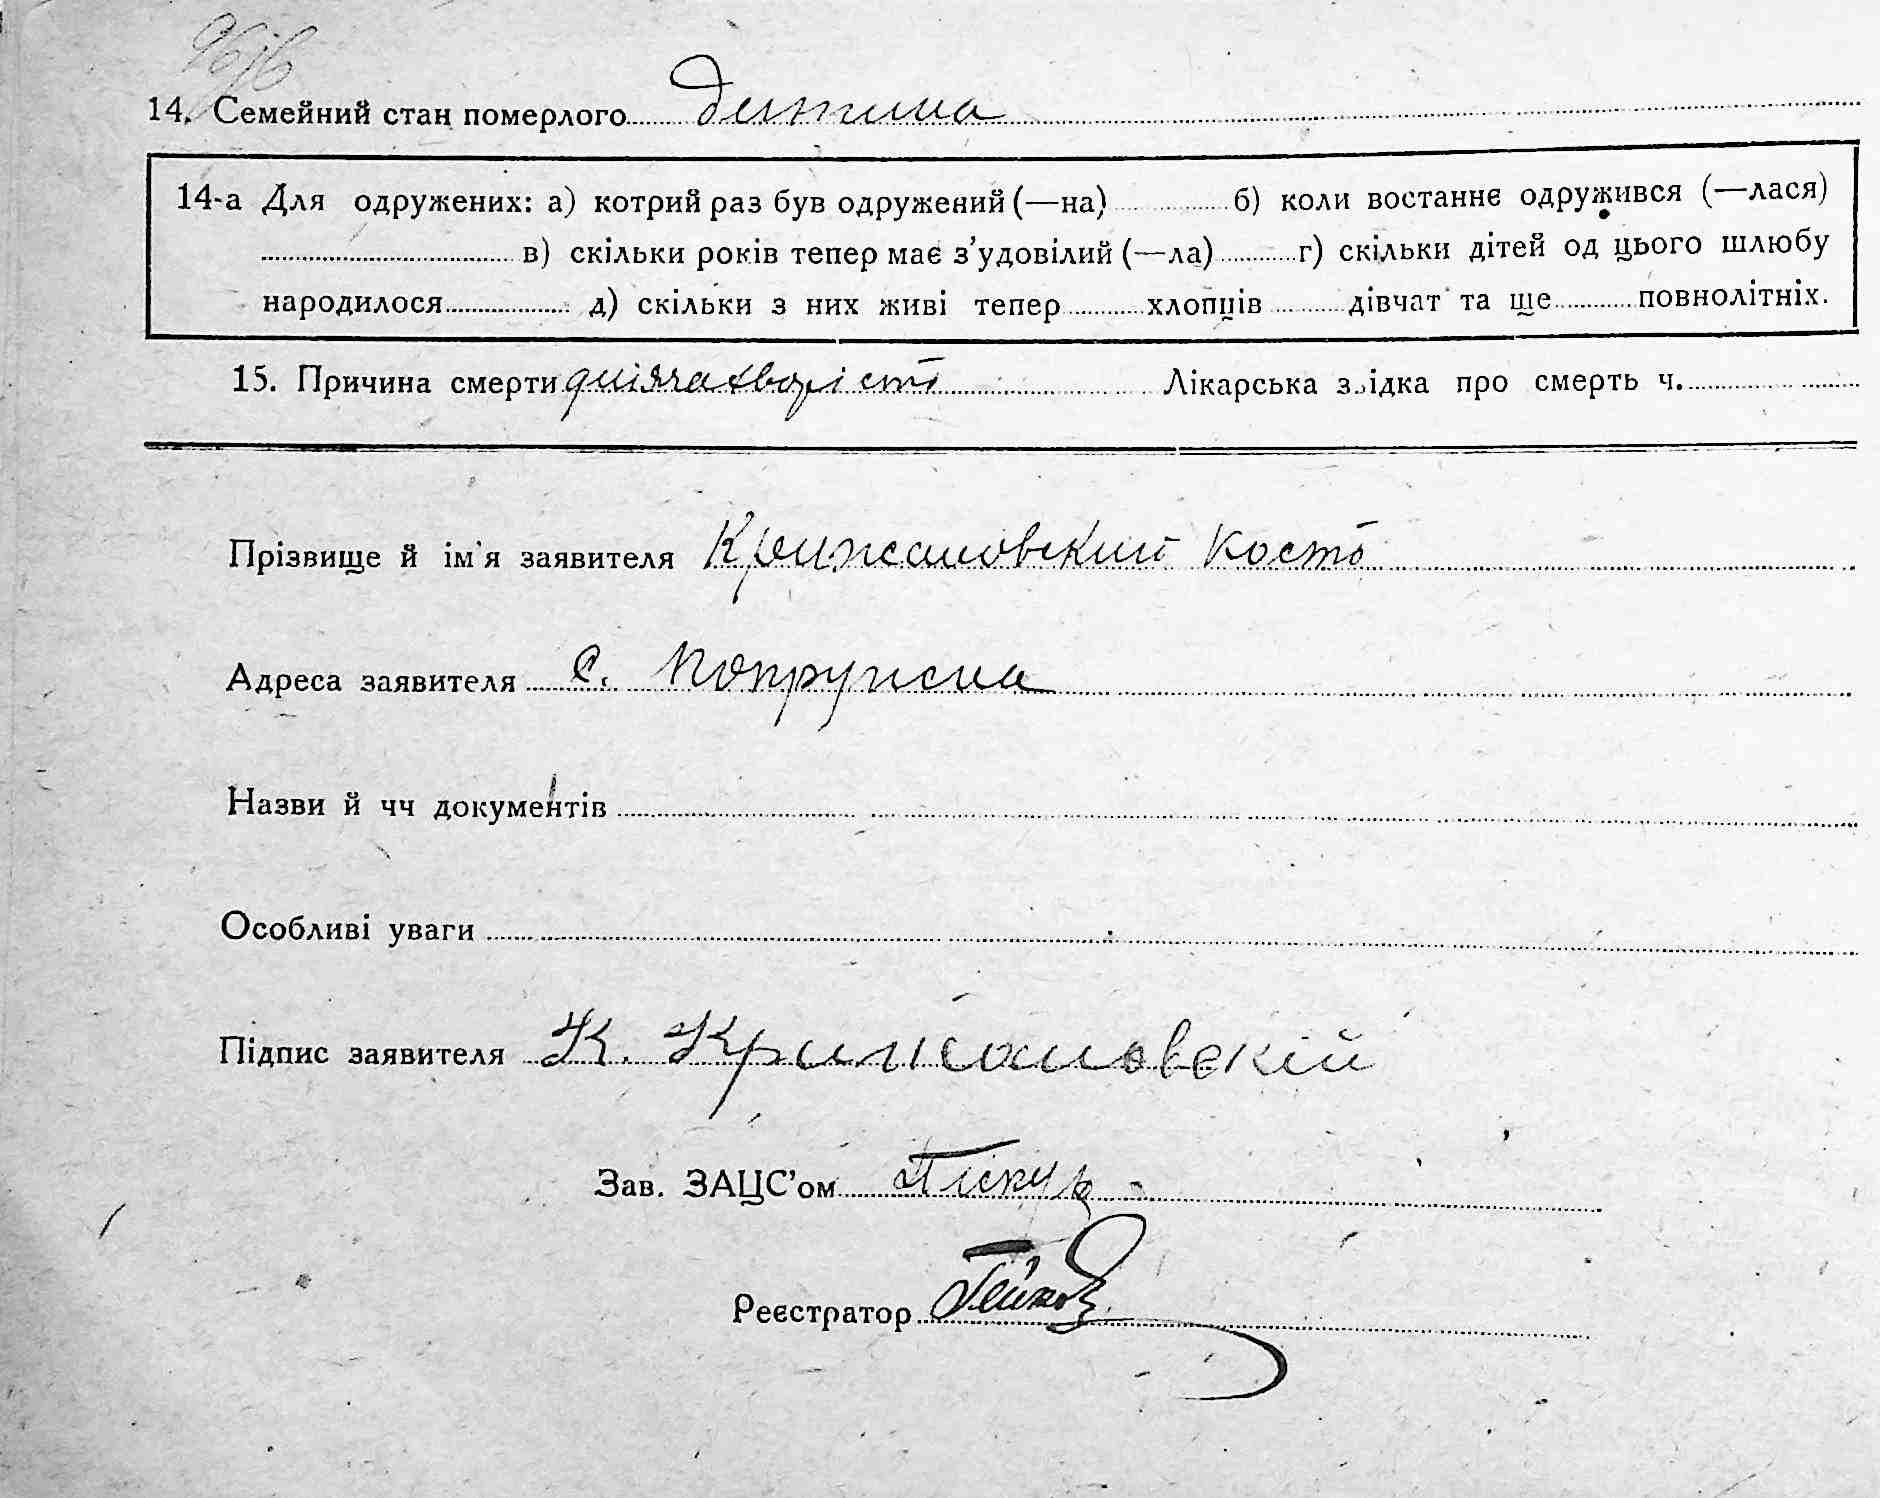 14. Семейний стан померлого Дитина
14-а Для одружених: а) котрий раз був одружений (—на) б) коли востаннє одружився (—лася)
в) скільки років тепер має з’удовілий (—ла) г) скільки дітей од цього шлюбу
народилося д) скільки з них живі тепер хлопців дівчат та ще повнолітніх.
15. Причина смерти Лікарська звідка про смерть ч.
Прізвище й ім'я заявителя Крижановский Кость
Адреса заявителя с. Попружна
Назви й чч документів
Особливі уваги
Підпис заявителя К. Крижановскій
Зав. ЗАЦС’ом
Реєстратор